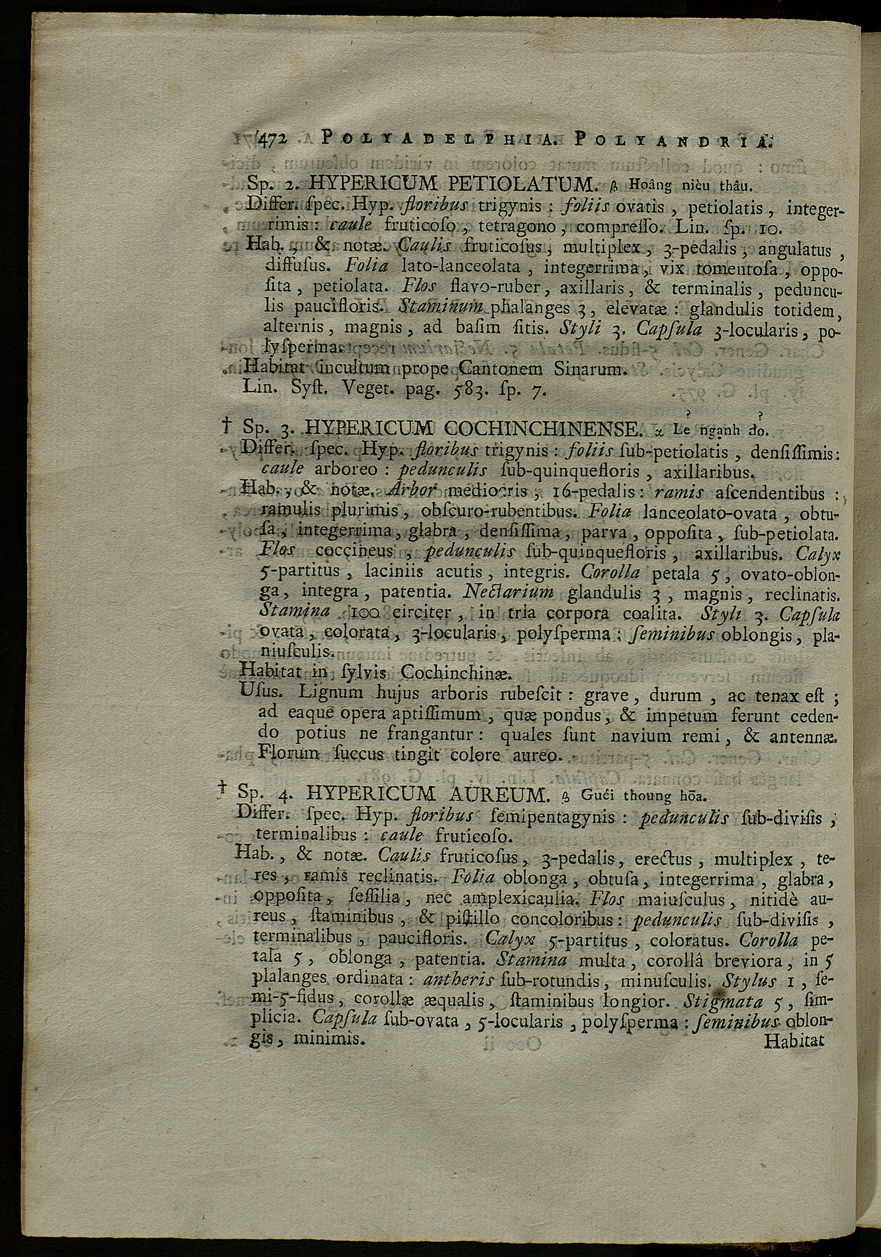 472 POLYADELPHIA. POLYANDRIA.
Sp. 2. HYPERICUM PETIOLATUM. β Hoâng nièu thâu.
Differ. ſpec. Hyp. floribus trigynis : foliis ovatis , petiolatis , integer-
rimis : caule fruticoſo , tetragono , compreſſo. Lin. ſp. 10.
Hab. , & notæ. Caulis fruticoſus , multiplex , 3-pedalis , angulatus ,
diffuſus. Folia lato-lanceolata , integerrima , vix tomentoſa , oppo-
ſita , petiolata. Flos flavo-ruber , axillaris , & terminalis , peduncu-
lis paucifloris. Staminum phalanges 3 , elevatæ : glandulis totidem ,
alternis , magnis , ad baſim ſitis. Styli 3. Capſula 3-locularis , po-
lyſperma.
Habitat incultum prope Cantonem Sinarum.
Lin. Syſt. Veget. pag. 583. ſp. 7.
† Sp. 3. HYPERICUM COCHINCHINENSE. α Lẻ nganh đỏ.
Differ. ſpec. Hyp. floribus trigynis : foliis ſub-petiolatis , denſiſſimis :
caule arboreo : pedunculis ſub-quinquefloris , axillaribus.
Hab. , & notæ. Arbor mediocris , 16-pedalis : ramis aſcendentibus :
ramulis plurimis , obſcuro-rubentibus. Folia lanceolato-ovata , obtu-
ſa , integerrima , glabra , denſiſſima , parva , oppoſita , ſub-petiolata.
Flos coccineus , pedunculis ſub-quinquefloris , axillaribus. Calyx
5-partitus , laciniis acutis , integris. Corolla petala 5 , ovato-oblon-
ga , integra , patentia. Nectarium glandulis 3 , magnis , reclinatis.
Stamina 100 circiter , in tria corpora coalita. Styli 3. Capſula
ovata , colorata , 3-locularis , polyſperma : ſeminibus oblongis , pla-
niuſculis.
Habitat in ſylvis Cochinchinæ.
Uſus. Lignum hujus arboris rubeſcit : grave , durum , ac tenax eſt ;
ad eaque opera aptiſſimum , quæ pondus , & impetum ferunt ceden-
do potius ne frangantur : quales ſunt navium remi , & antennæ.
Florum ſuccus tingit colore aureo.
† Sp. 4. HYPERICUM AUREUM. β Guéi thoung hōa.
Differ. ſpec. Hyp. floribus ſemipentagynis : pedunculis ſub-diviſis ,
terminalibus : caule fruticoſo.
Hab. , & notæ. Caulis fruticoſus , 3-pedalis , erectus , multiplex , te-
res , ramis reclinatis. Folia oblonga , obtuſa , integerrima , glabra ,
oppoſita , ſeſſilia , nec amplexicaulia. Flos maiuſculus , nitidè au-
reus , ſtaminibus , & piſtillo concoloribus : pedunculis ſub-diviſis ,
terminalibus , paucifloris. Calyx 5-partitus , coloratus. Corolla pe-
tala 5 , oblonga , patentia. Stamina multa , corollâ breviora , in 5
plalanges ordinata : antheris ſub-rotundis , minuſculis. Stylus 1 , ſe-
mi-5-fidus , corollæ æqualis , ſtaminibus longior. Stigmata 5 , ſim-
plicia. Capſula ſub-ovata , 5-locularis , polyſperma : ſeminibus oblon-
gis , minimis.
Habitat